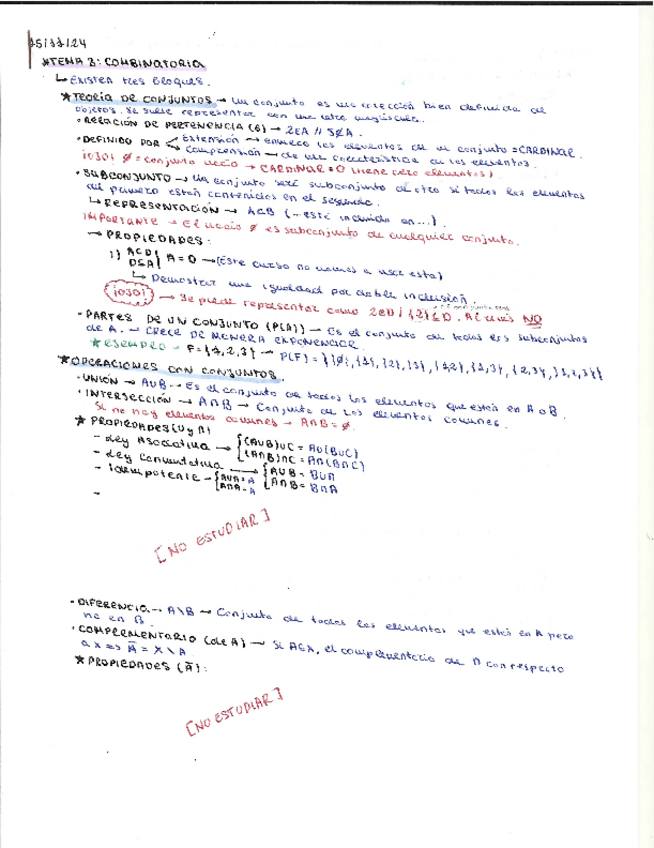 15/11/24
*TEMA 3: COMBINATORIA
↳ EXISTEN tres BLOQUES.
★TEORÍA DE CONJUNTOS → Un conjunto es una colección bien definida de
objetos. Se suele representar con una letra mayúscula.
· RELACIÓN DE PERTENENCIA (∈) → 2∈A // 5∉A.
· DEFINIDO POR < Extensión → enumero los elementos de un conjunto = CARDINAR.
Comprensión → da una característica de los elementos.
¡OJO! ∅ = conjunto vacío → CARDINAR = 0 (tiene cero elementos)
· SUBCONJUNTO → Un conjunto será subconjunto de otro si todos los elementos
del primero están contenidos en el segundo.
↳ REPRESENTACIÓN → A⊆B (→ está incluido en...).
IMPORTANTE → El vacío ∅ es subconjunto de cualquier conjunto.
→ PROPIEDADES:
1) A⊂D| D⊆A| A=D →(Este curso no vamos a usar esta)
↳ Demostrar una igualdad por doble inclusión.
¡OJO! → Se puede representar como 2∈D / {2}⊆D. Al revés NO
· PARTES DE UN CONJUNTO (P(A)) → Es el conjunto de todos los subconjuntos
de A. → CRECE DE MANERA EXPONENCIAR
★ EJEMPLO → F={1,2,3} → P(F)={{∅},{1},{2},{3},{1,2},{1,3},{2,3},{1,2,3}}
★OPERACIONES CON CONJUNTOS.
· UNIÓN → A∪B → Es el conjunto de todos los elementos que están en A o B.
· INTERSECCIÓN → A∩B → Conjunto de los elementos comunes.
Si no hay elementos comunes → A∩B=∅.
★ PROPIEDADES (∪ y ∩)
- Ley Asociativa → {(A∪B)∪C = A∪(B∪C)
(A∩B)∩C = A∩(B∩C)
- Ley Conmutativa → {A∪B = B∪A
- Idempotente → {A∪A=A A∩A=A {A∩B = B∩A
-
[NO ESTUDIAR]
· DIFERENCIA → A\B → Conjunto de todos los elementos que están en A pero
no en B.
· COMPLEMENTARIO (de A) → Si A⊆X, el complementario de A con respecto
a X => Ā = X \ A
★ PROPIEDADES (Ā):
[NO ESTUDIAR]